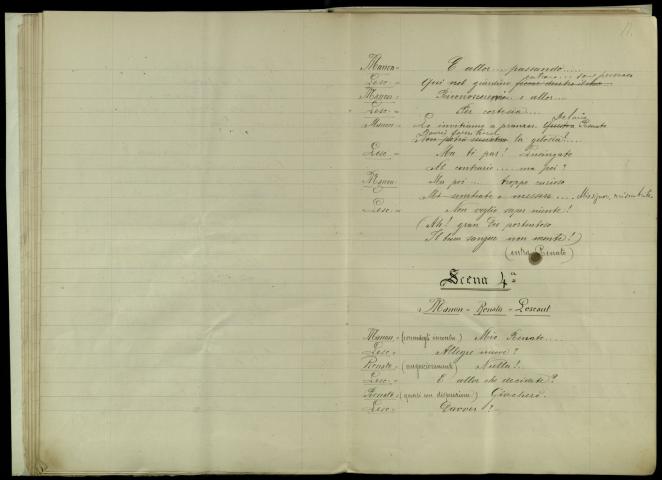 11.
Manon - E allor.... passando.....
Lesc. - Qui nel giardino
Manon - e allor...
Lesc. - Per cortesia....
Manon - Lo invitiamo a pranzar. Renato
la gelosia!....
Lesc. - Ma ti par! Tutt'altro
Al contrario.... ma poi?
Manon - Ma poi.... troppo curioso
Mi sembrate o messere....
Lesc. - Non voglio saper niente!
(Ah! gran Dio portentoso
Il buon sangue non mente!)
(entra Renato)
Scena 4ª
Manon - Renato - Lescaut
Manon - (correndogli incontro) Mio Renato.....
Lesc. - Allegre nuove?
Renato - (angosciosamente) Nulla!..
Lesc. - E allor che decidete?
Renato - (quasi con disperazione) Giocherò.
Lesc. - Davver!?..